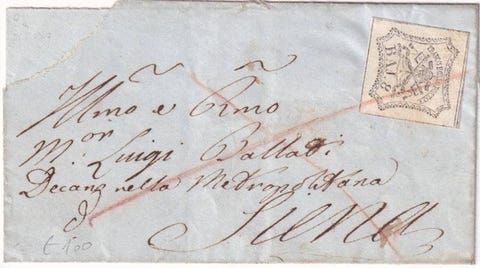 Illmo e Rmo
Mor. Luigi Ballati
Decano nella Metropolitana
di
Siena
BAI 8
€ 100